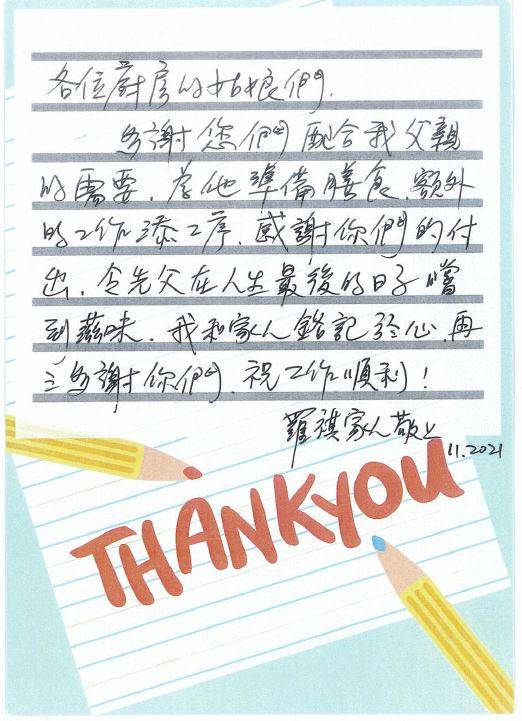 各位廚房的姑娘們,
多謝您們配合我父親
的需要,為他準備膳食,額外
的工作添工序,感謝你們的付
出,令先父在人生最後的日子嚐
到滋味,我和家人銘記於心,再
三多謝你們,祝工作順利!
羅祺家人敬上
11.2021
THANK YOU